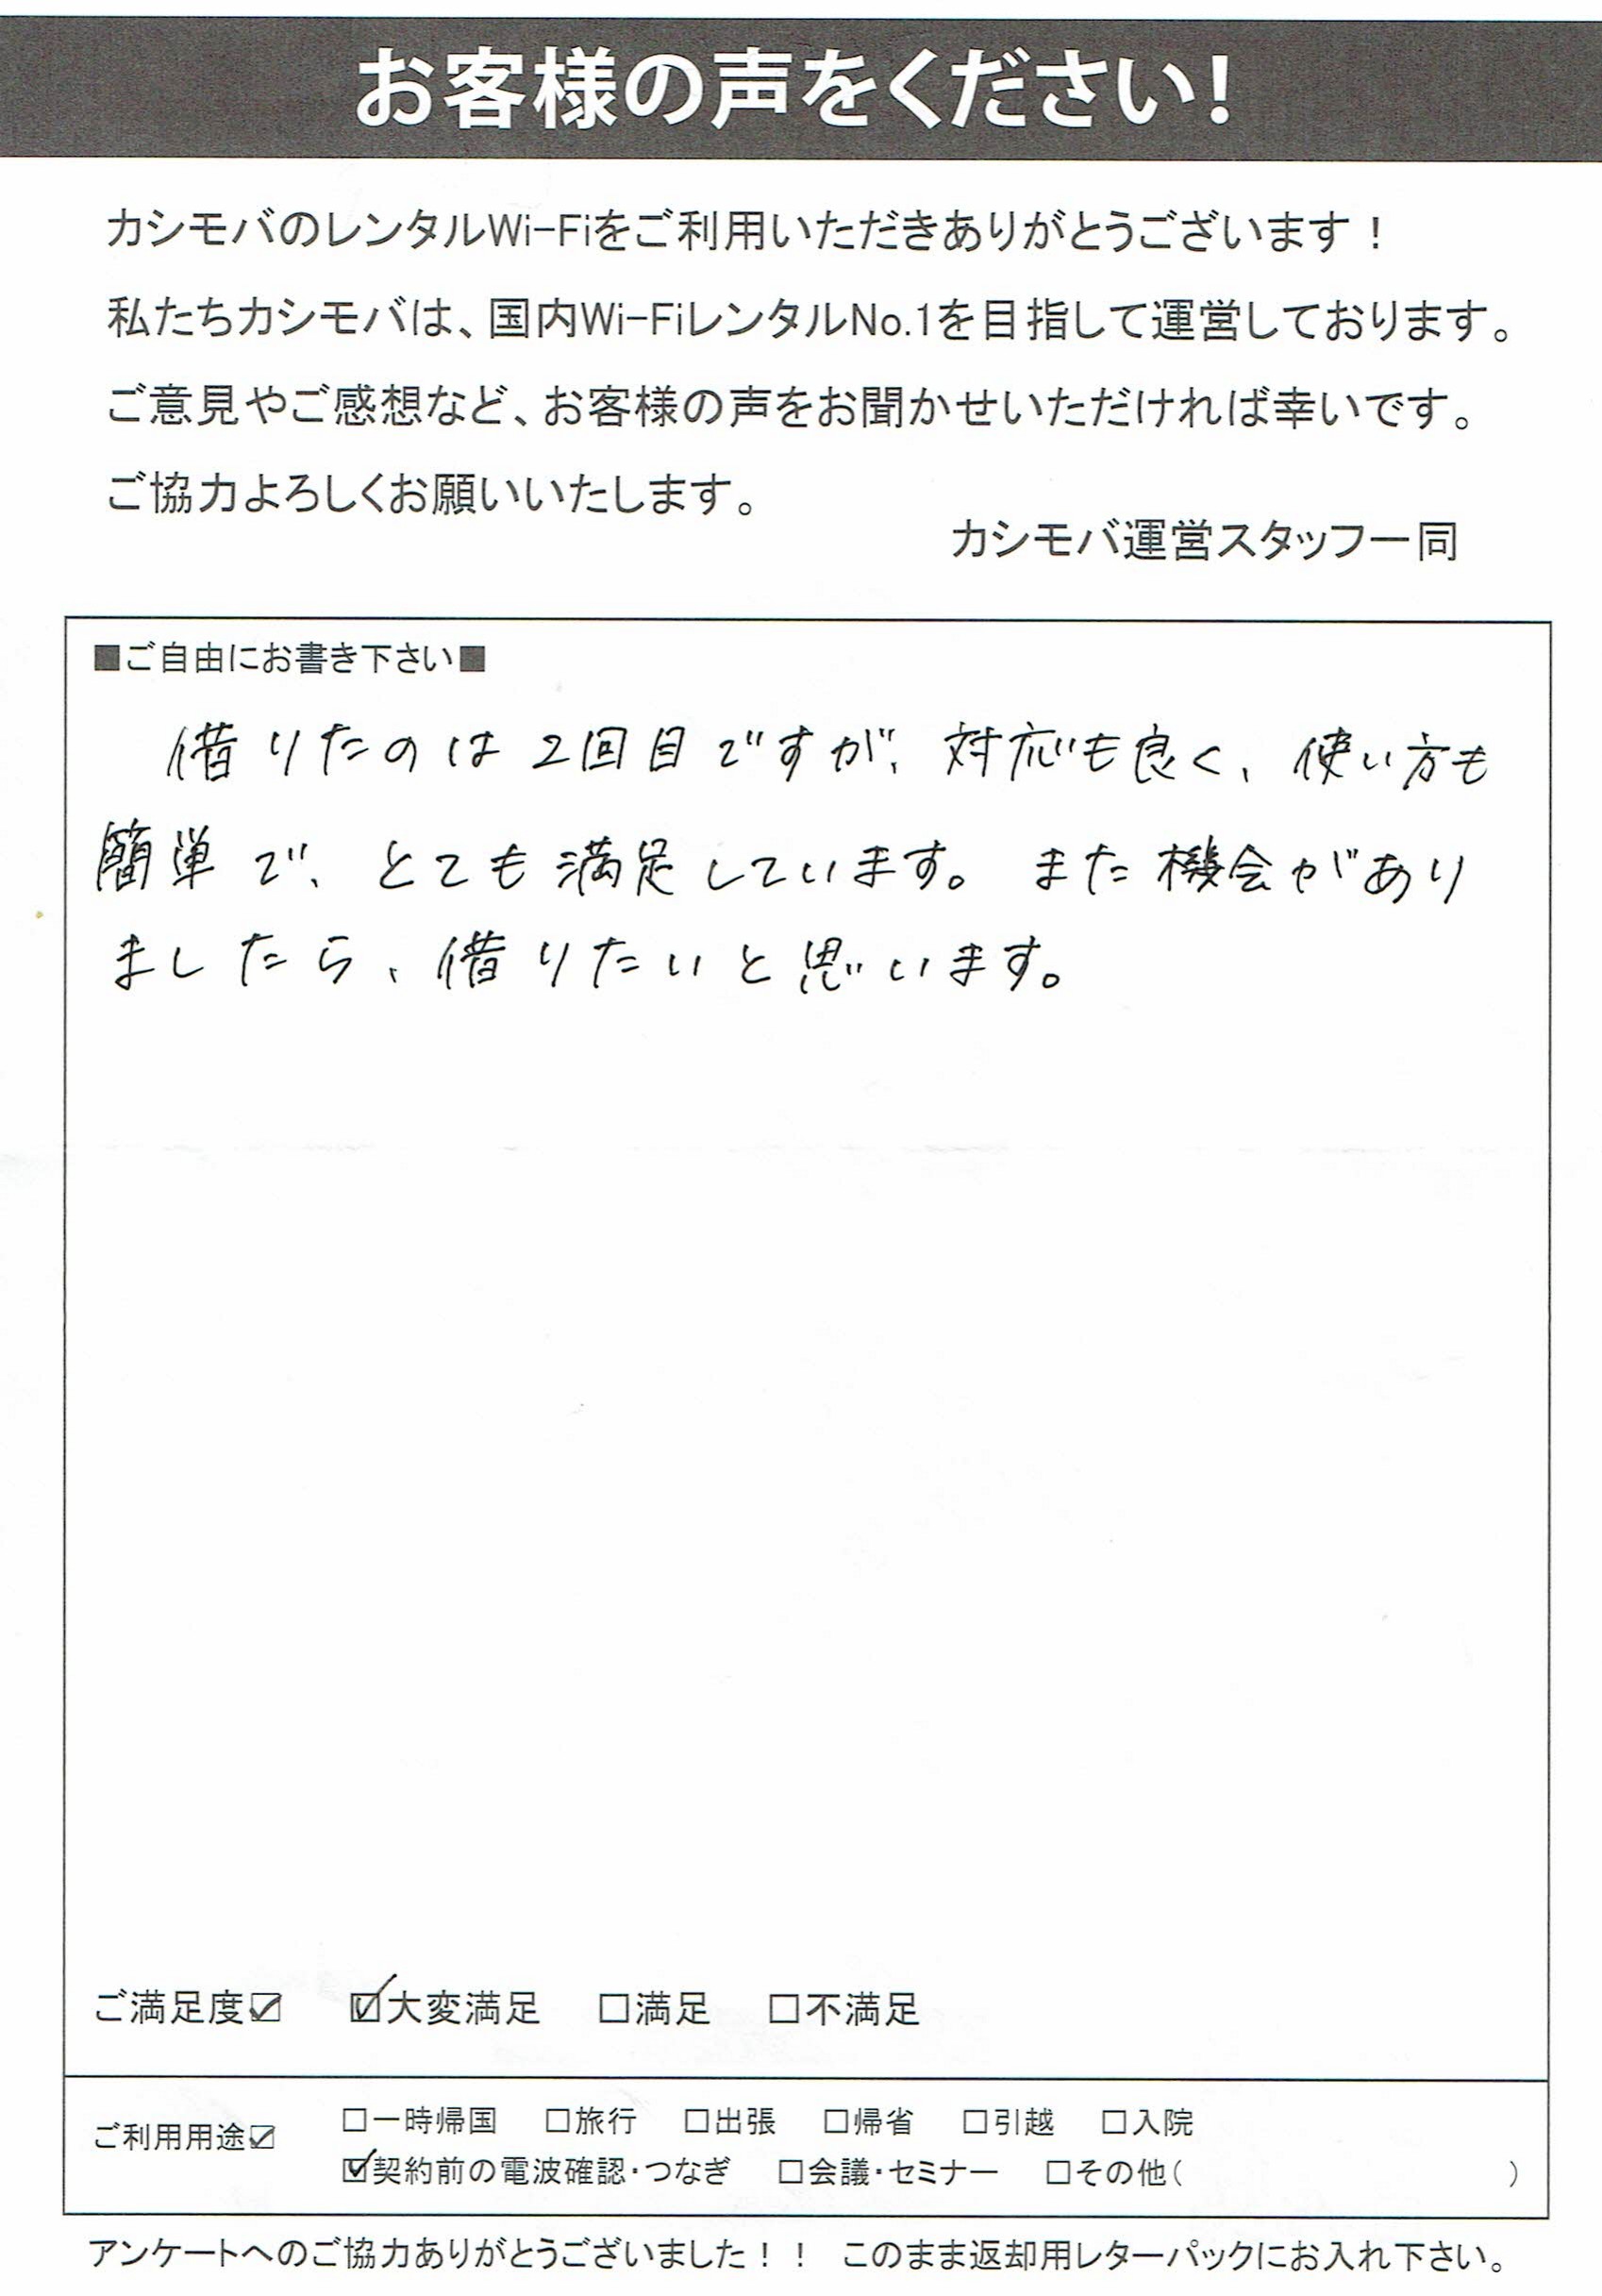 お客様の声をください!
カシモバのレンタルWi-Fiをご利用いただきありがとうございます！
私たちカシモバは、国内Wi-FiレンタルNo.1を目指して運営しております。
ご意見やご感想など、お客様の声をお聞かせいただければ幸いです。
ご協力よろしくお願いいたします。
カシモバ運営スタッフ一同
■ご自由にお書き下さい■
借りたのは2回目ですが、対応も良く、使い方も
簡単で、とても満足しています。また機会があり
ましたら、借りたいと思います。
ご満足度☑ ☑大変満足 □満足 □不満足
ご利用用途☑ □一時帰国 □旅行 □出張 □帰省 □引越 □入院
☑契約前の電波確認・つなぎ □会議・セミナー □その他( )
アンケートへのご協力ありがとうございました！！ このまま返却用レターパックにお入れ下さい。